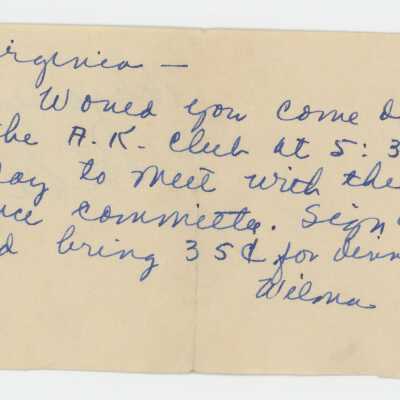 irginia —
Would you come d
the A.K. club at 5:3
day to meet with the
nce committe. Sign
d bring 35¢ for dinn
Wilma